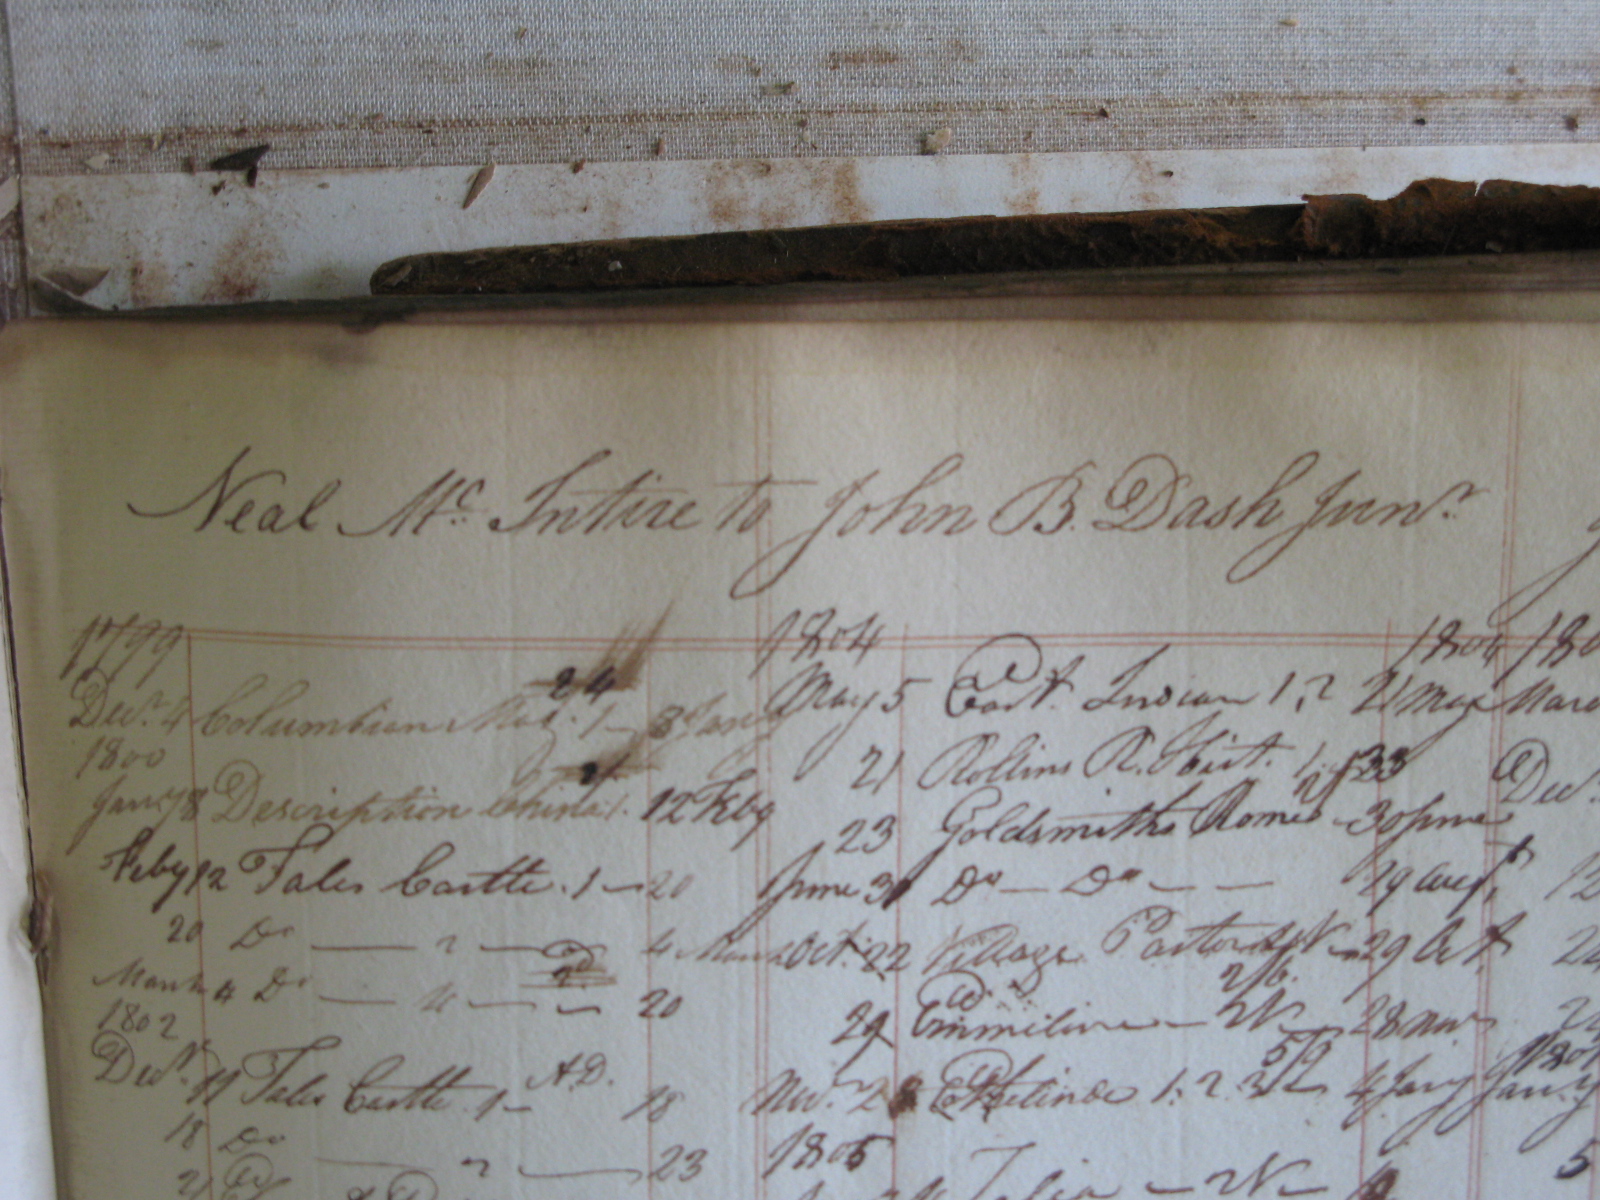 Neal Mc. Intire to John B. Dash Junr.
1799
24
Decr. 4 Columbian Mag. 1 — 8 Jany
1800
Jany 8 Description China 1. 12 Feby
Feby 12 Tales Castle. 1 — 20
20 Do — 2 — 4 March
March 4 Do — 4 — 20
1802
Decr. 11 Tales Castle. 1 — A.D. 18
18 Do — 2 — 23
1804
May 5 East Indian 1, 2 21 May
21 Rollins R. Hist. 1
23 Goldsmiths Rome 30 June
June 30 Do — Do — — 29 Augt.
Oct. 22 Village Pastor 29 Oct
29 Emmeline — 28 Nov
Nov. 28 Ethelinde 1. 2. 3 4 Jany
1805
1804
March
Decr.
Jany
5